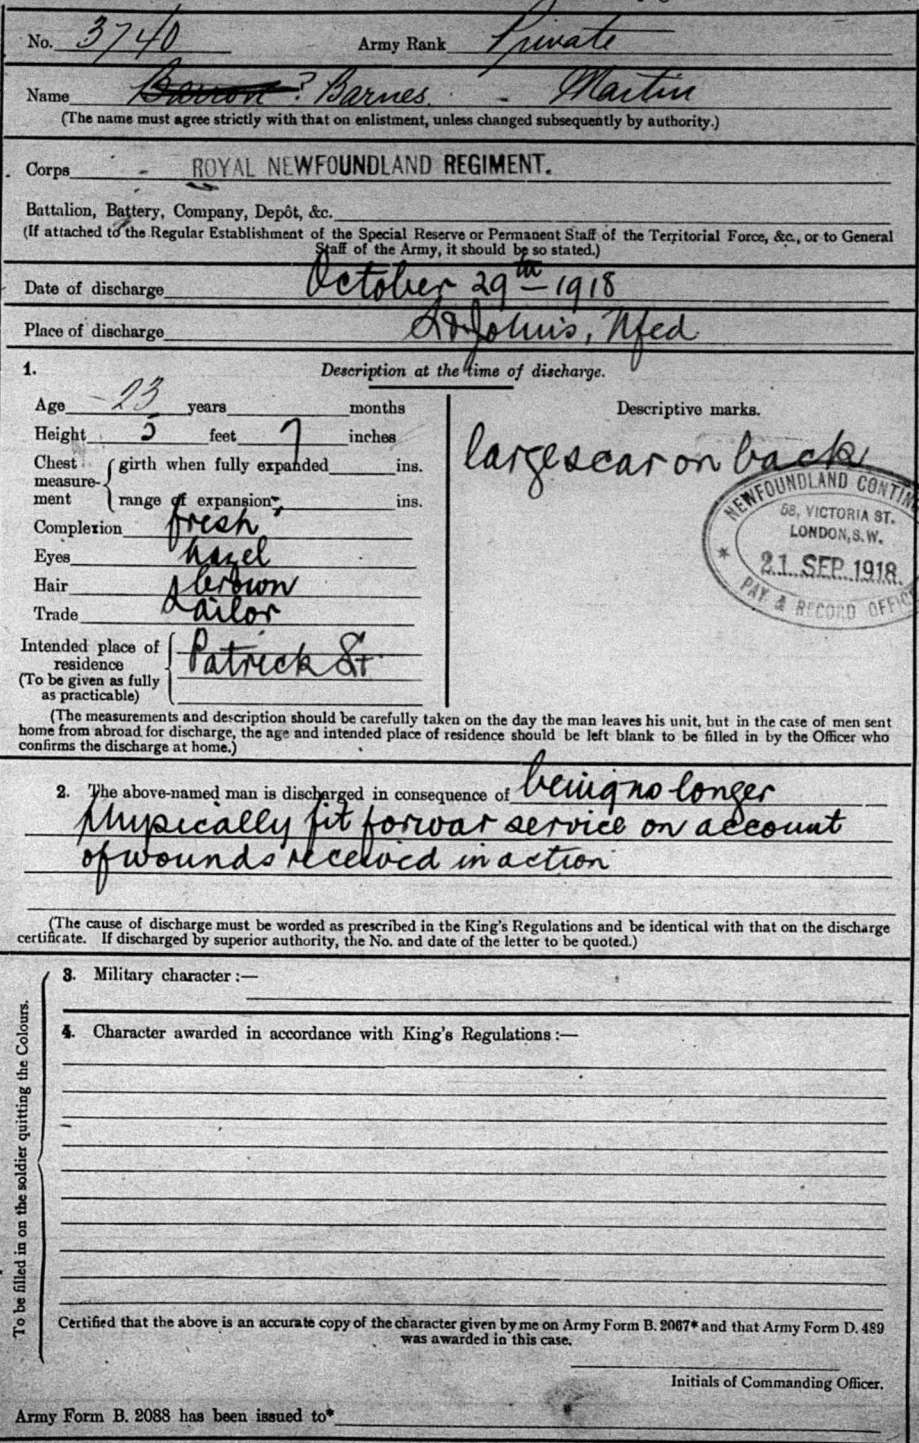 No. 3740 Army Rank Private
Name Barron ? Barnes. - Martin
(The name must agree strictly with that on enlistment, unless changed subsequently by authority.)
Corps - ROYAL NEWFOUNDLAND REGIMENT.
Battalion, Battery, Company, Depôt, &c.
(If attached to the Regular Establishment of the Special Reserve or Permanent Staff of the Territorial Force, &c., or to General
Staff of the Army, it should be so stated.)
Date of discharge October 29th - 1918
Place of discharge St. John's, Nfld
1. Description at the time of discharge.
Age 23 years months
Height 5 feet 7 inches
Chest measure-ment { girth when fully expanded ins.
range of expansion ins.
Complexion fresh
Eyes hazel
Hair brown
Trade tailor
Intended place of
residence
(To be given as fully
as practicable)
Patrick St.
Descriptive marks.
large scar on back
NEWFOUNDLAND CONTIN
58, VICTORIA ST.
LONDON, S.W.
21 SEP 1918
PAY & RECORD OFFIC
(The measurements and description should be carefully taken on the day the man leaves his unit, but in the case of men sent
home from abroad for discharge, the age and intended place of residence should be left blank to be filled in by the Officer who
confirms the discharge at home.)
2. The above-named man is discharged in consequence of being no longer
physically fit for war service on account
of wounds received in action
(The cause of discharge must be worded as prescribed in the King's Regulations and be identical with that on the discharge
certificate. If discharged by superior authority, the No. and date of the letter to be quoted.)
To be filled in on the soldier quitting the Colours.
3. Military character :—
4. Character awarded in accordance with King's Regulations :—
Certified that the above is an accurate copy of the character given by me on Army Form B. 2067* and that Army Form D. 489
was awarded in this case.
Initials of Commanding Officer.
Army Form B. 2088 has been issued to*